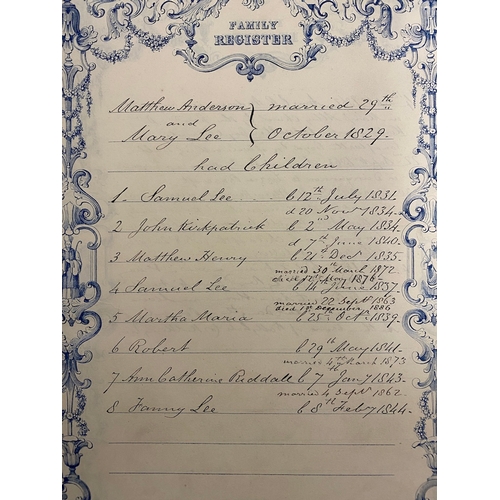 FAMILY
REGISTER
Matthew Anderson } married 29th
and
Mary Lee } October 1829.
had Children
1 - Samuel Lee b 12th July 1831.
d 20 Novr 1834.
2 John Kirkpatrick b 2nd May 1834.
d 7th June 1840.
3 Matthew Henry b 21st Decr 1835.
married 30th March 1872
died 12th May 1876
4 Samuel Lee b June 1837.
married 22 Septr 1863
Died 1st December 1886
5 Martha Maria b 25th Octr 1839.
6 Robert b 29th May 1841.
married 4th March 1873
7 Ann Catherine Riddall b 7th Jany 1843.
married 4 Septr 1862.
8 Fanny Lee b 8th Feby 1844.